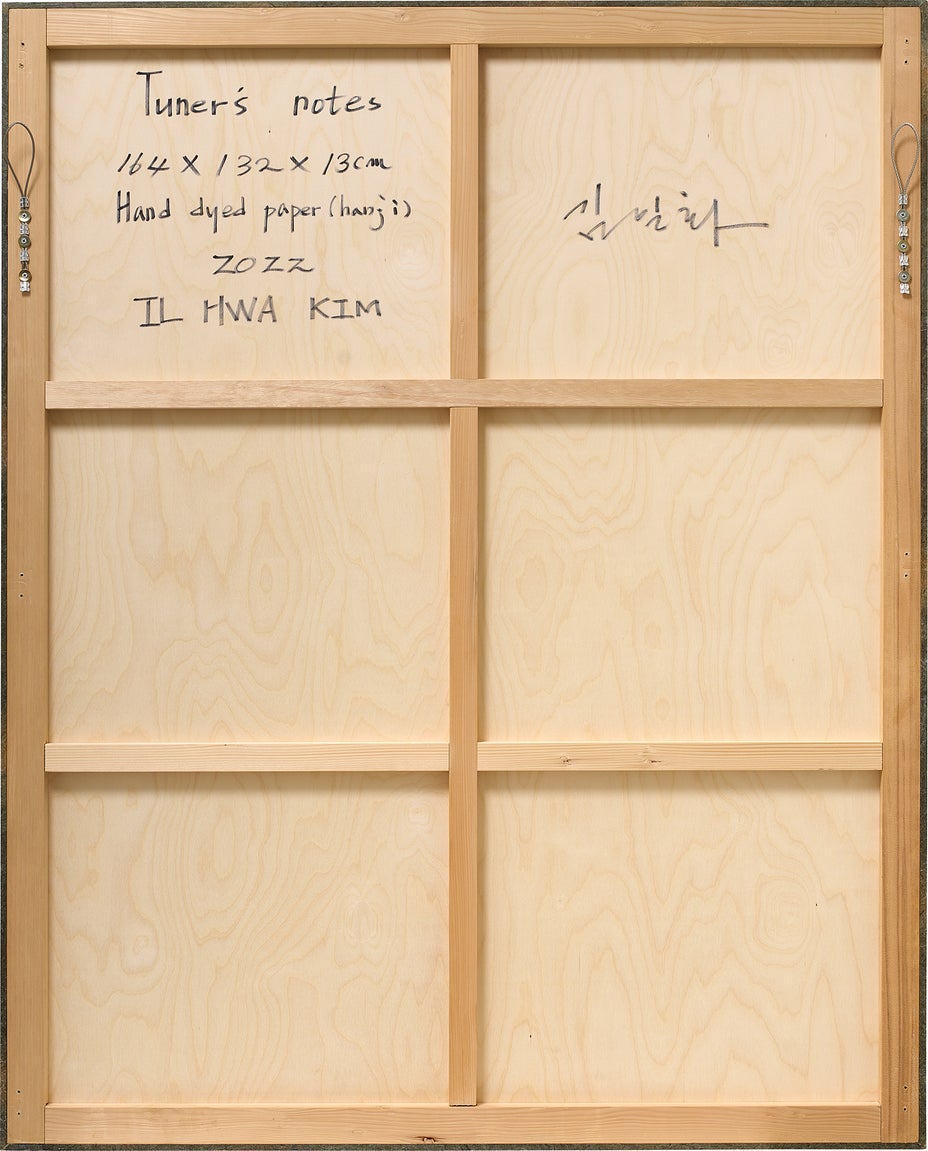 Tuner's notes
164 X 132 X 13cm
Hand dyed paper (hanji)
2022
IL HWA KIM
김일화